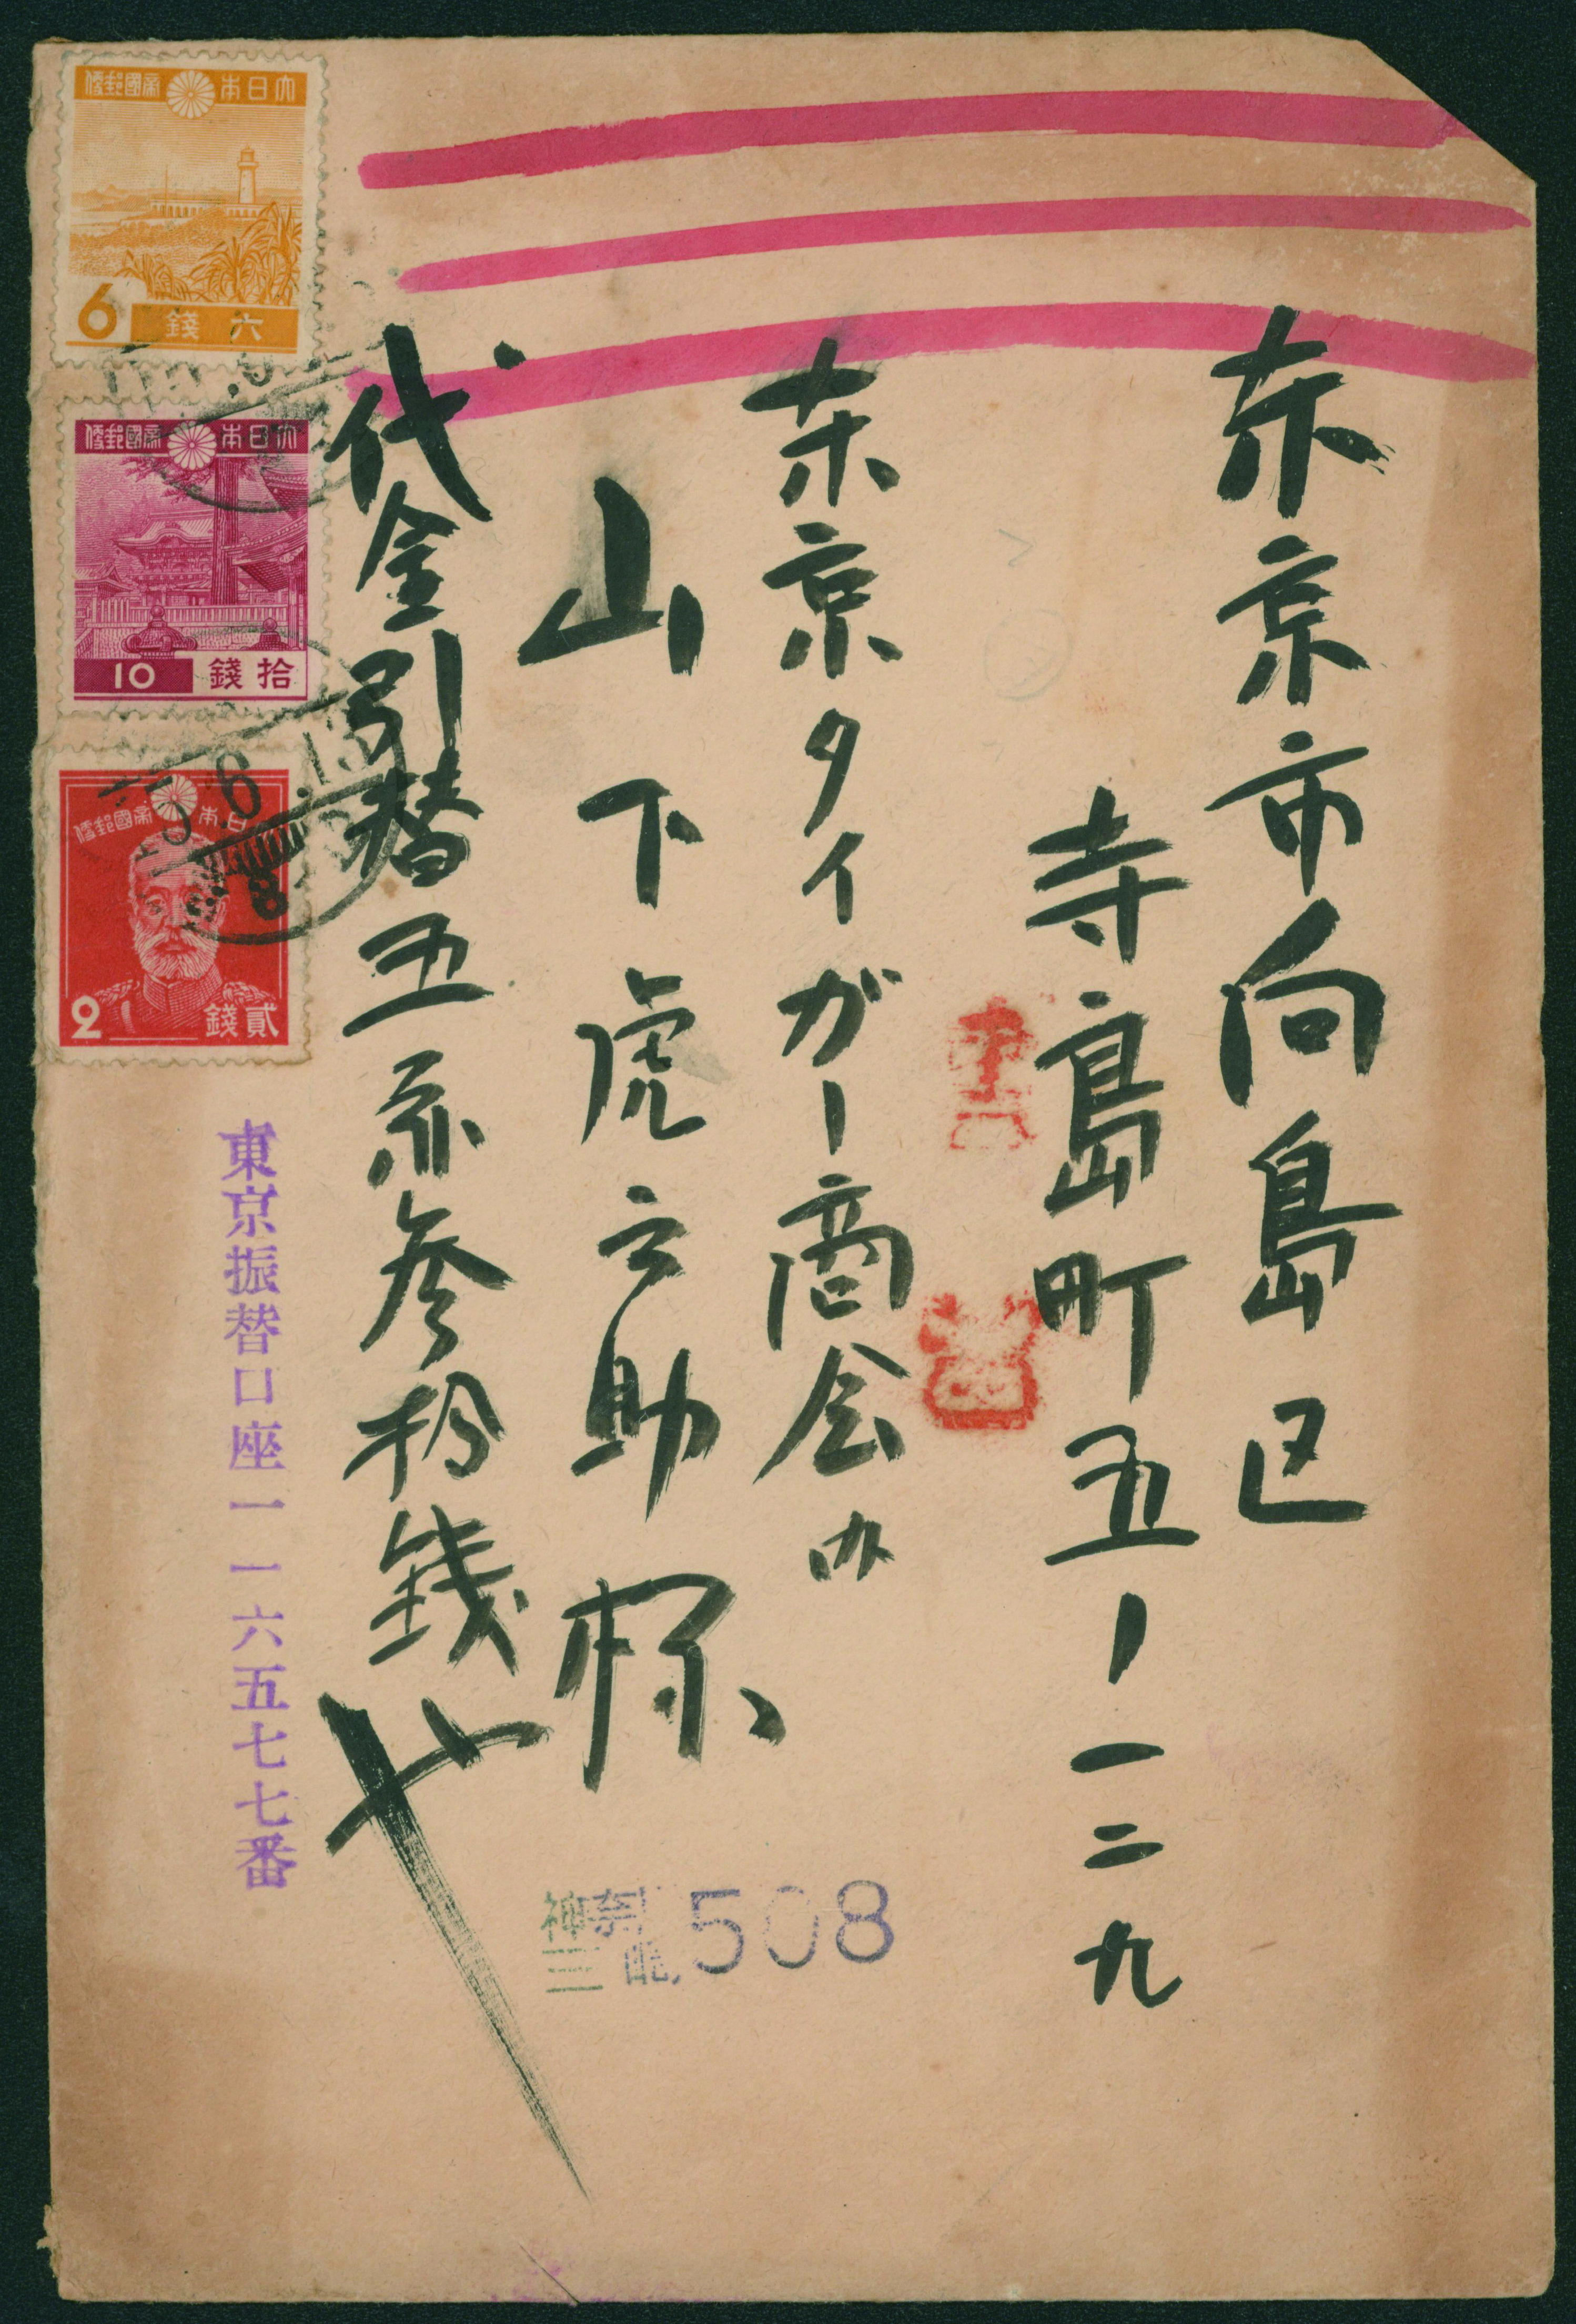 東京市向島区
寺島町五ー一二九
東京タイガー商会内
山下虎之助様
代金引替五円参拾銭也
東京振替口座一一六五七七番
神奈川
三配
508
書留
大日本帝國郵便
6
六錢
大日本帝國郵便
10
拾錢
大日本帝國郵便
2
貳錢